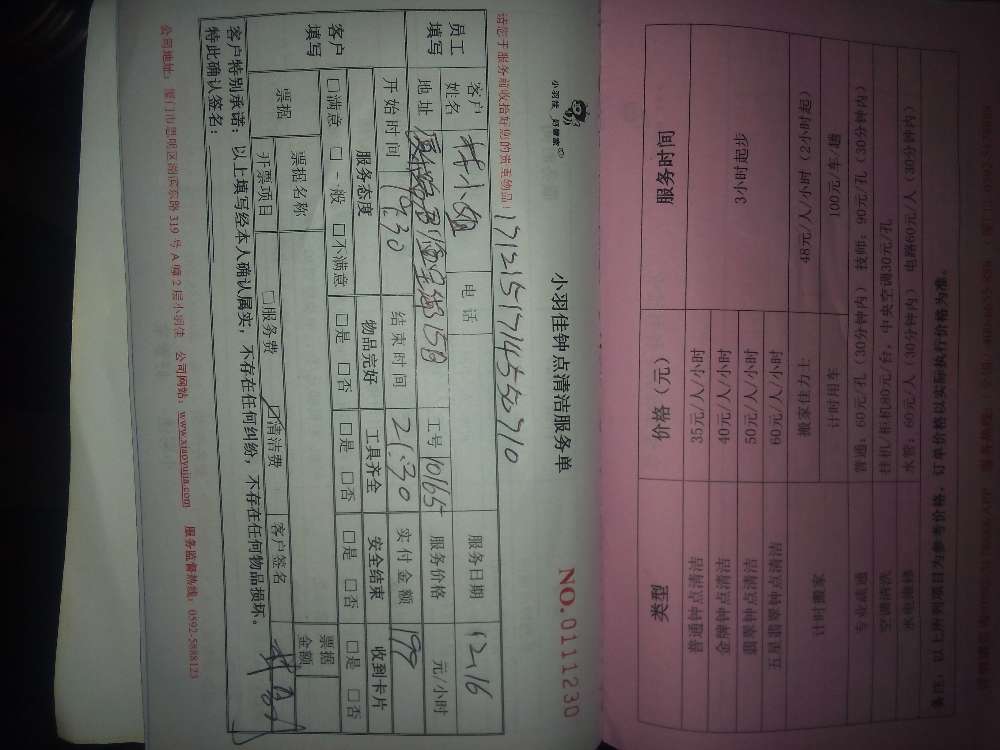 小羽佳
好管家
小羽佳钟点清洁服务单
NO.01111230
请您于服务前收拾好您的贵重物品！
员工填写
客户姓名 林小姐 电话 服务日期 12.16
地址 工号 10165 服务价格 元/小时
开始时间 18.30 结束时间 21.30 实付金额 99
客户填写
服务态度 物品完好 工具齐全 安全结束 收到卡片
□满意 □一般 □不满意 □是 □否 □是 □否 □是 □否 □是 □否
票据 票据名称 票据金额
开票项目 □服务费 □清洁费 客户签名
客户特别承诺：以上填写经本人确认属实，不存在任何纠纷，不存在任何物品损坏。
特此确认签名：
公司地址：厦门市思明区湖滨东路 319 号 A 幢 2 层小羽佳 公司网站：www.xiaoyujia.com 服务监督热线：0592-5888123
类型 价格（元） 服务时间
普通钟点清洁 35元/人/小时 3小时起步
金牌钟点清洁 40元/人/小时
翡翠钟点清洁 50元/人/小时
五星翡翠钟点清洁 60元/人/小时
计时搬家 搬家佳力士 48元/人/小时（2小时起）
计时用车 100元/车/趟
专业疏通 普通：60元/孔（30分钟内） 技师：90元/孔（30分钟内）
空调清洗 中央空调30元/孔
水电维修 水管：60元/人（30分钟内） 电路60元/人（30分钟内）
备注：以上所列项目为参考价格，订单价格以实际执行价格为准。